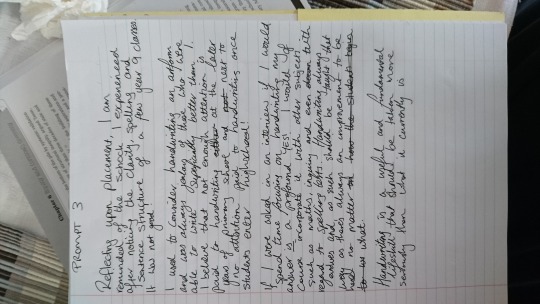 PROMPT 3
Reflecting upon placement, I am
reminded of the school I experienced
after noticing the clarity, spelling and
sentence structure of a few year 9 classes.
It was not good.
I used to consider handwriting an artform
and was always jealous of those who were
able to write better than I.
I believe that not enough attention is
paid to handwriting at the later
years of primary school and next to
no attention paid to handwriting once
students enter highschool!
If I were asked in an interview if I would
spend time focusing on handwriting my
answer is a profound 'YES!' I would of
course incorporate it with other subjects
such as maths, inquiry and even with
regard to spelling tests. Handwriting always
evolves and as such should be taught that
way as there's always an improvement to be
had no matter
what
Handwriting is a useful and fundamental
skill that should be taken more
seriously than what it currently is